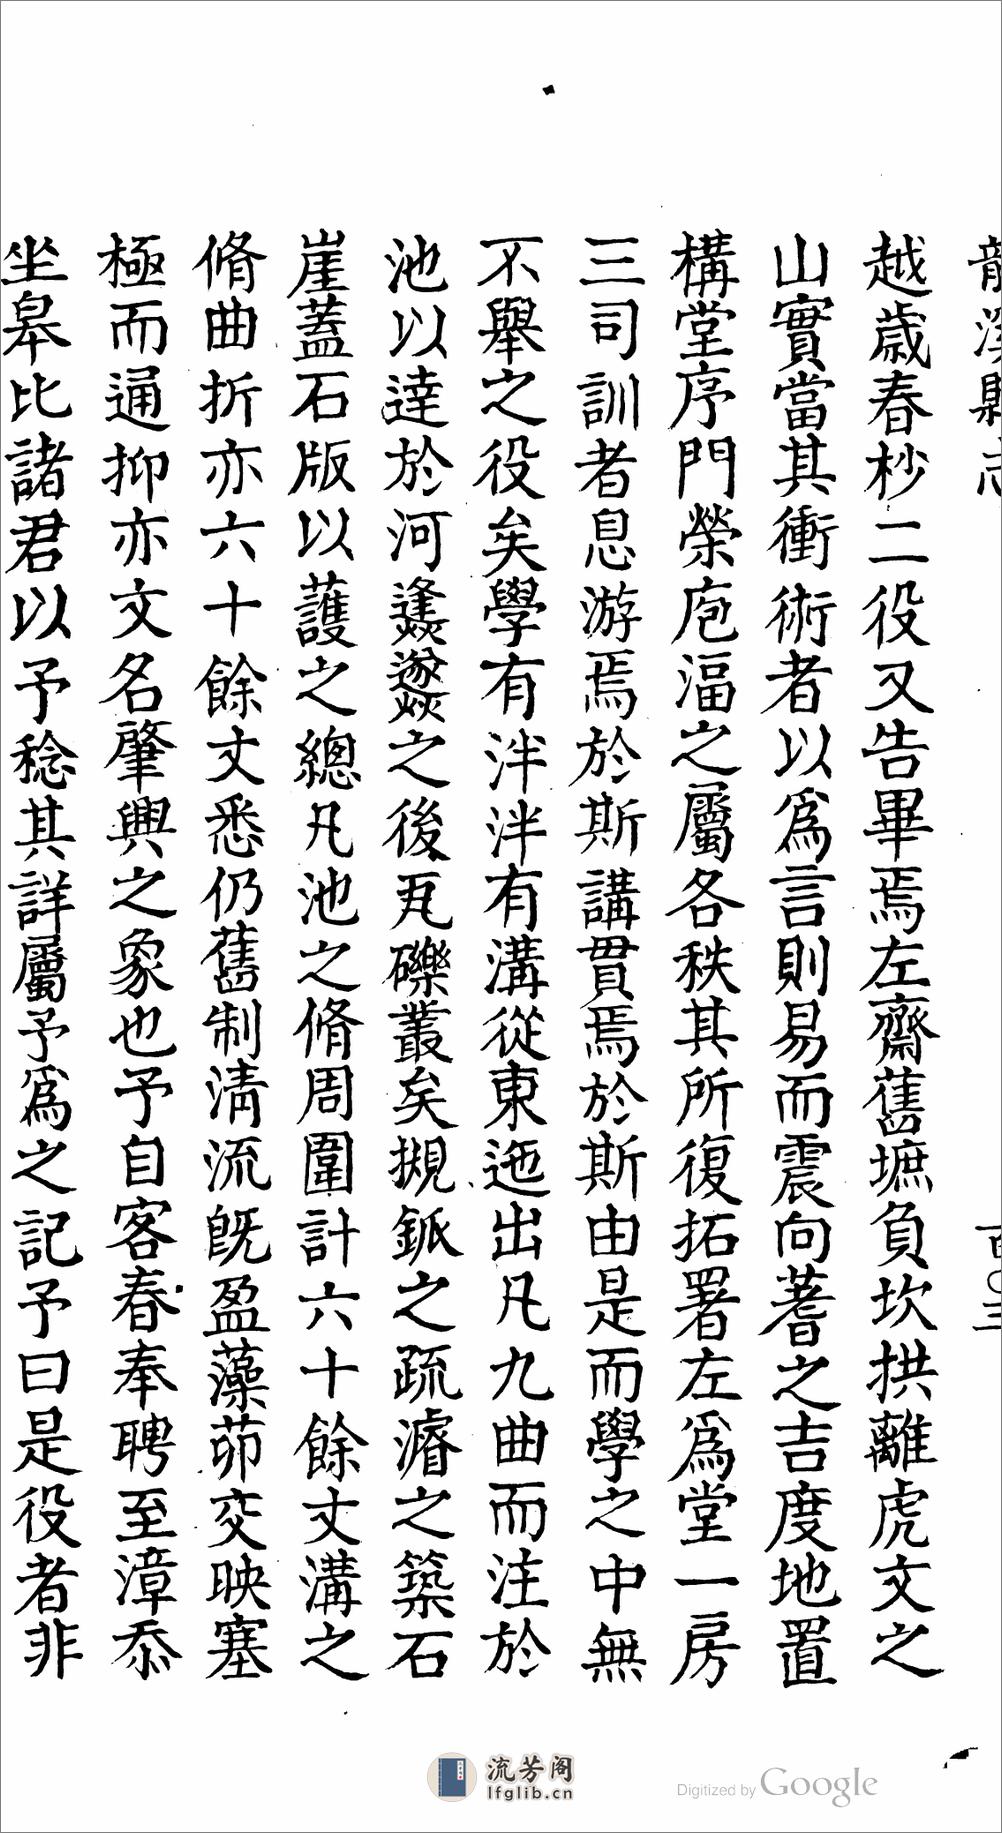 龍溪縣志
百〇三
越歲春杪二役又告畢焉左齋舊墌負坎拱離虎文之
山實當其衝術者以爲言則易而震向蓍之吉度地置
構堂序門榮庖湢之屬各秩其所復拓署左爲堂一房
三司訓者息游焉於斯講貫焉於斯由是而學之中無
不舉之役矣學有泮泮有溝從東迤出凡九曲而注於
池以達於河㷭㸂之後瓦礫叢矣摫鈲之疏濬之築石
崖蓋石版以護之總凡池之脩周圍計六十餘丈溝之
脩曲折亦六十餘丈悉仍舊制清流旣盈藻茆交映塞
極而通抑亦文名肇興之象也予自客春奉聘至漳忝
坐皋比諸君以予稔其詳屬予爲之記予曰是役者非
流芳阁
lfglib.cn
Digitized by Google